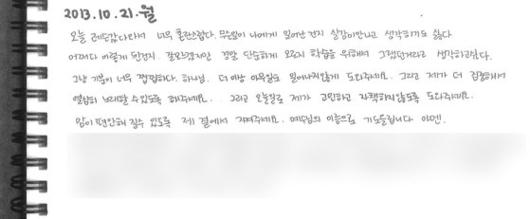 2013.10.21.월
오늘 레슨갔다와서 너무 혼란스럽다. 무슨일이 나에게 일어난 건지 실감이안나고 생각하기도 싫다
어쩌다 이렇게 된건지. 잘모르겠지만 정말 단순하게 오로지 학습을 위해서 그랬던거라고 생각하고싶다.
그냥 기분이 너무 찝찝하다. 하나님. 더이상 아무일도 일어나지않게 도와주세요. 그리고 제가 더 집중해서
열심히 노래할 수있도록 해주세요. 그리고 오늘일로 제가 고민하고 자책하지않도록 도와주세요.
맘이 편안해 질수 있도록 제 곁에서 지켜주세요. 예수님의 이름으로 기도드립니다 아멘.